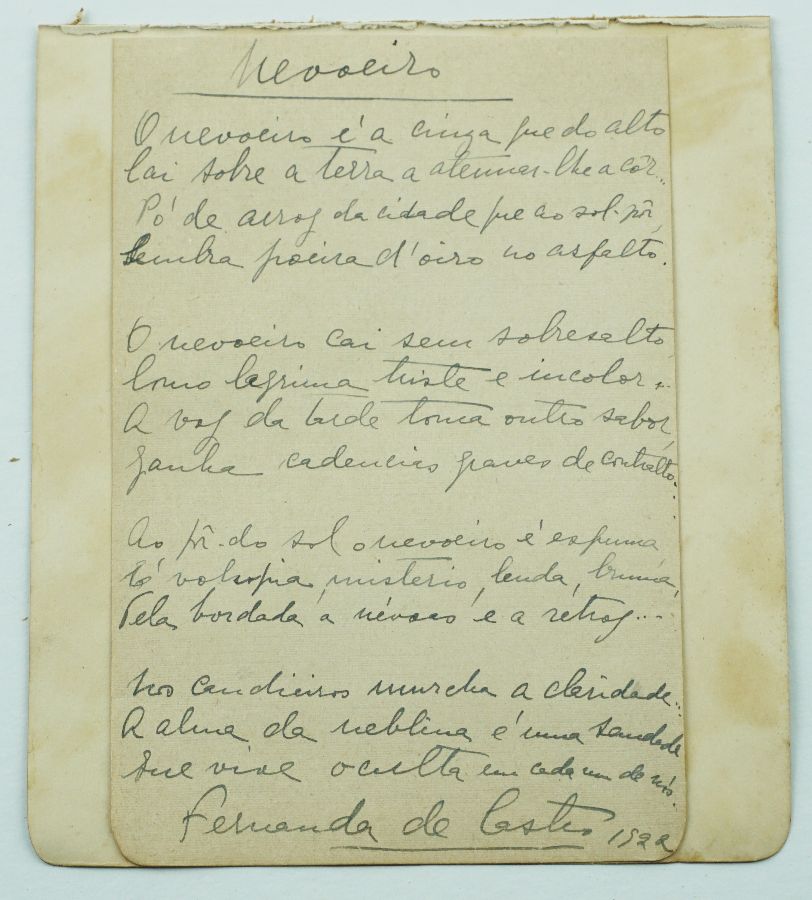 Nevoeiro
O nevoeiro é a cinza que do alto
Cai sobre a terra a atenuar-lhe a côr...
Pó de arroz da cidade que ao sol-pôr,
Lembra poeira d'oiro no asfalto.
O nevoeiro cai sem sobresalto
Como lagrima triste e incolor...
A voz da tarde toma outro sabor,
Ganha cadencias graves de contralto...
Ao pôr-do sol o nevoeiro é espuma
É misterio, lenda, bruma,
Tela bordada a névoas e a retroz...
Nos candieiros murcha a claridade...
A alma da neblina é uma saudade
Que vive oculta em cada um de nós.
Fernanda de Castro 1922